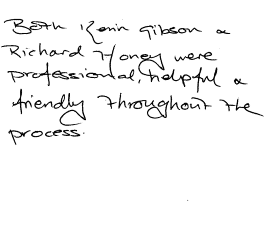 Both Kevin Gibson &
Richard Honey were
professional, helpful &
friendly throughout the
process.